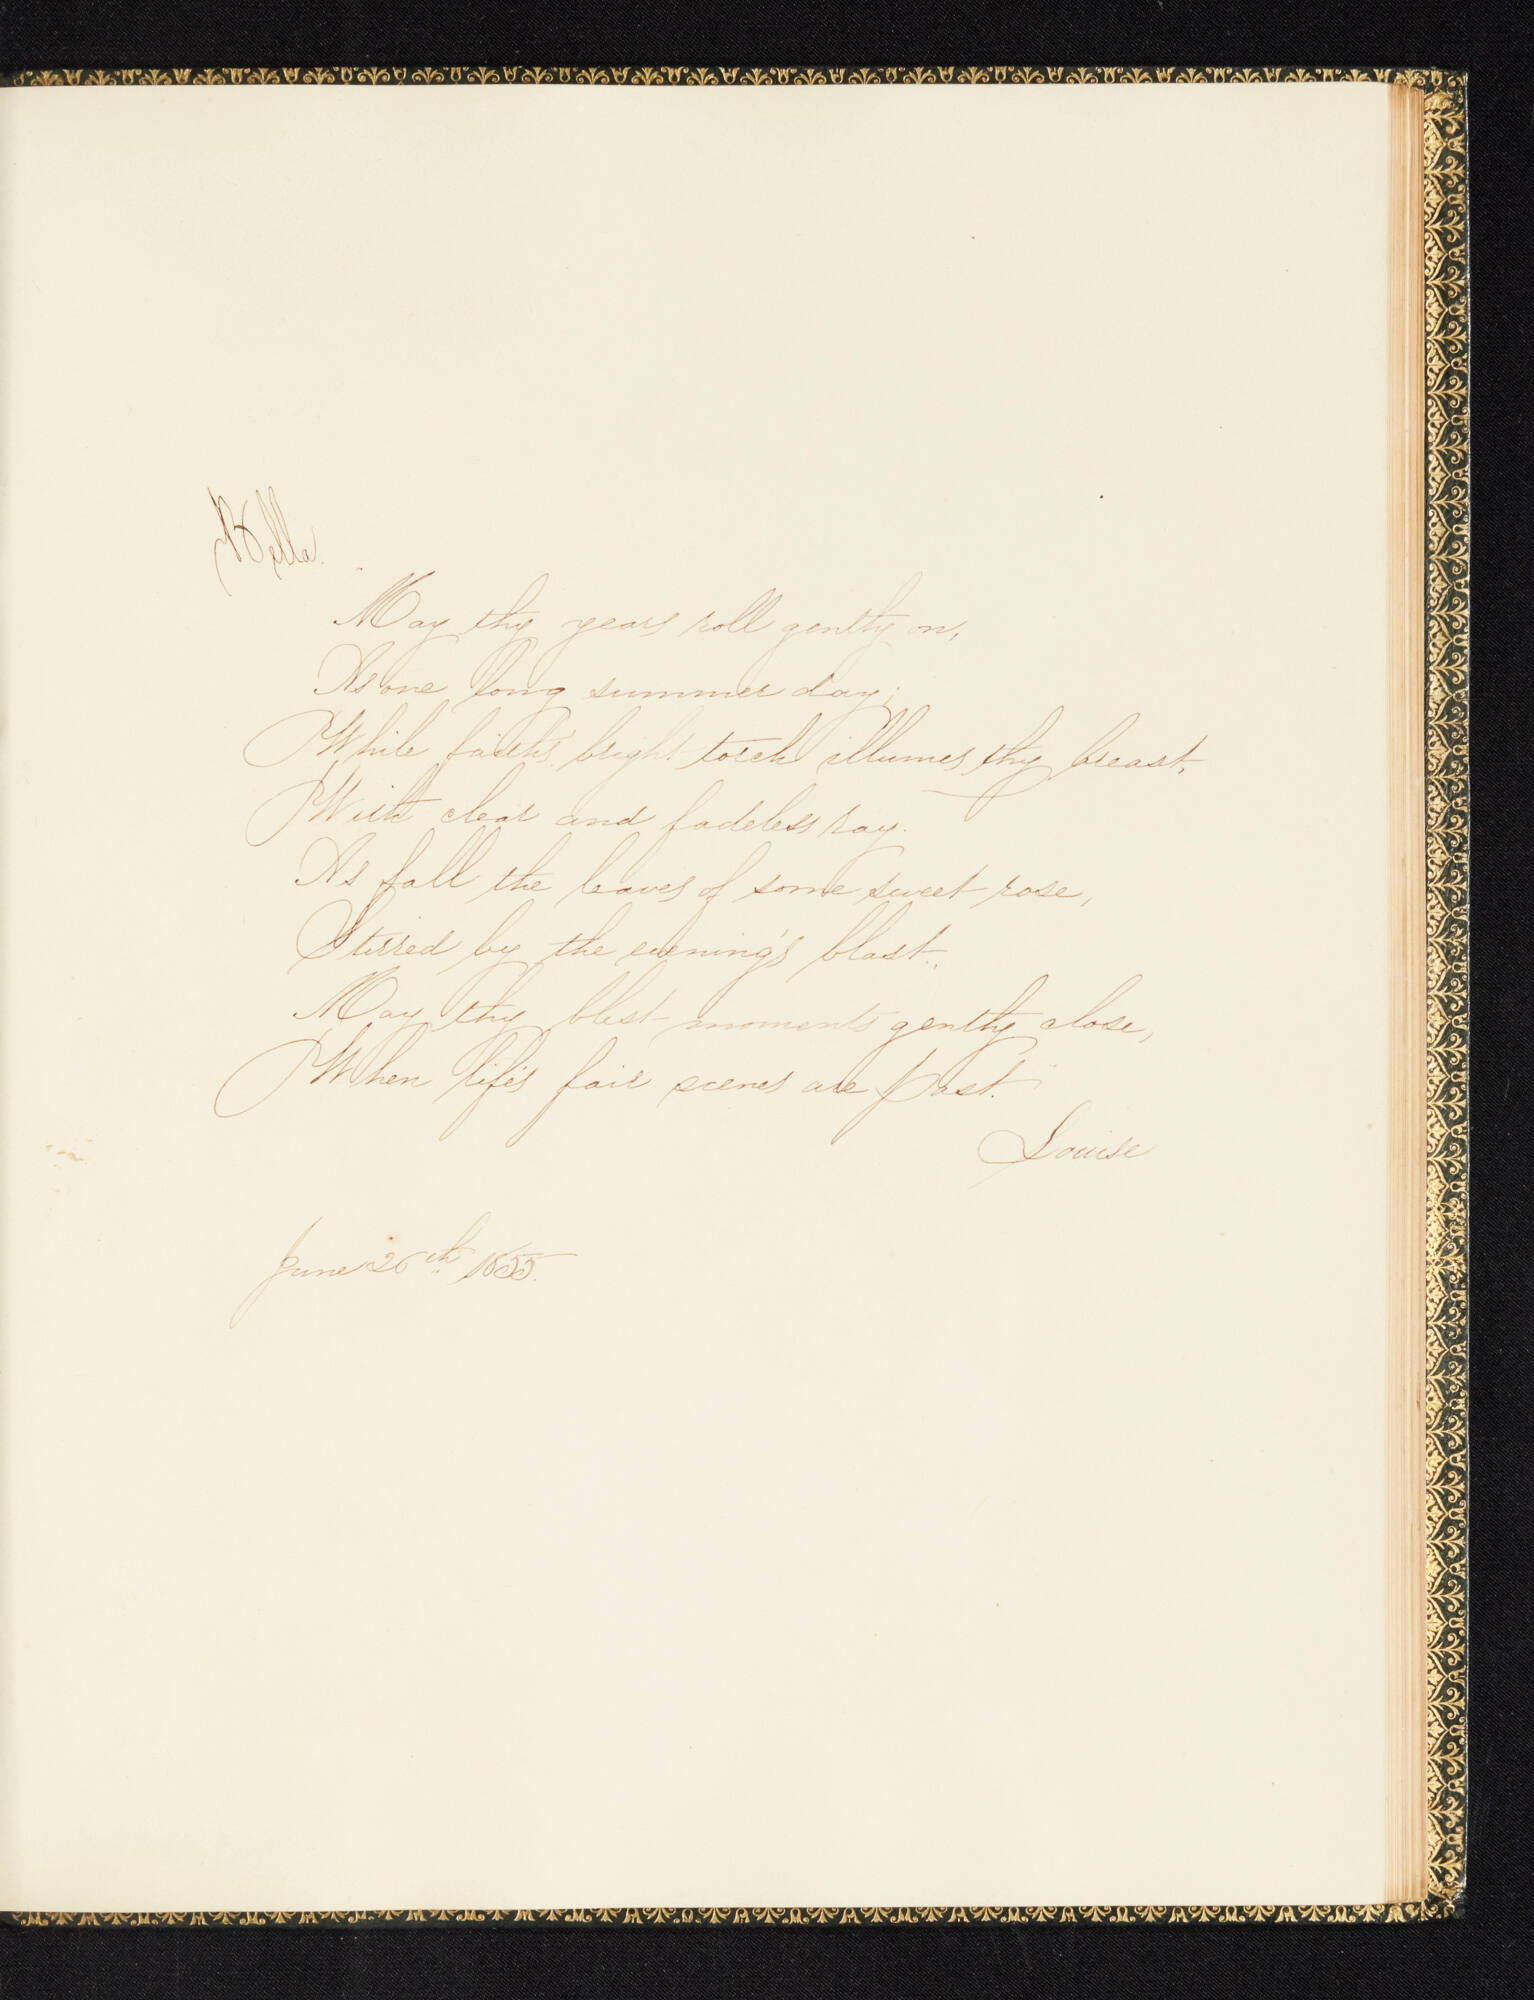 Bella.
May thy years roll gently on,
As one long summer day;
While faith's bright torch illumes thy breast,
With clear and fadeless ray.
As fall the leaves of some sweet rose,
Stirred by the evening's blast.,
May thy blest moments gently close,
When life's fair scenes are past.
Louise
June 26th 1855.